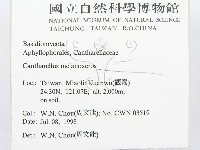 國立自然科學博物館
NATIONAL MUSEUM OF NATURAL SCIENCE
TAICHUNG TAIWAN R.O.CHINA
Basidiomycota
Aphyllophorales, Cantharellaceae
Cantharellus melanoxeros
Loc: Taiwan Miaoli
24.30N, 121.07E; alt. 2,000m,
on soil.
Col: W.N. Chou(周文能); No: CWN 03519
Date: Jul. 08, 1998
Det: W.N. Chou(周文能)